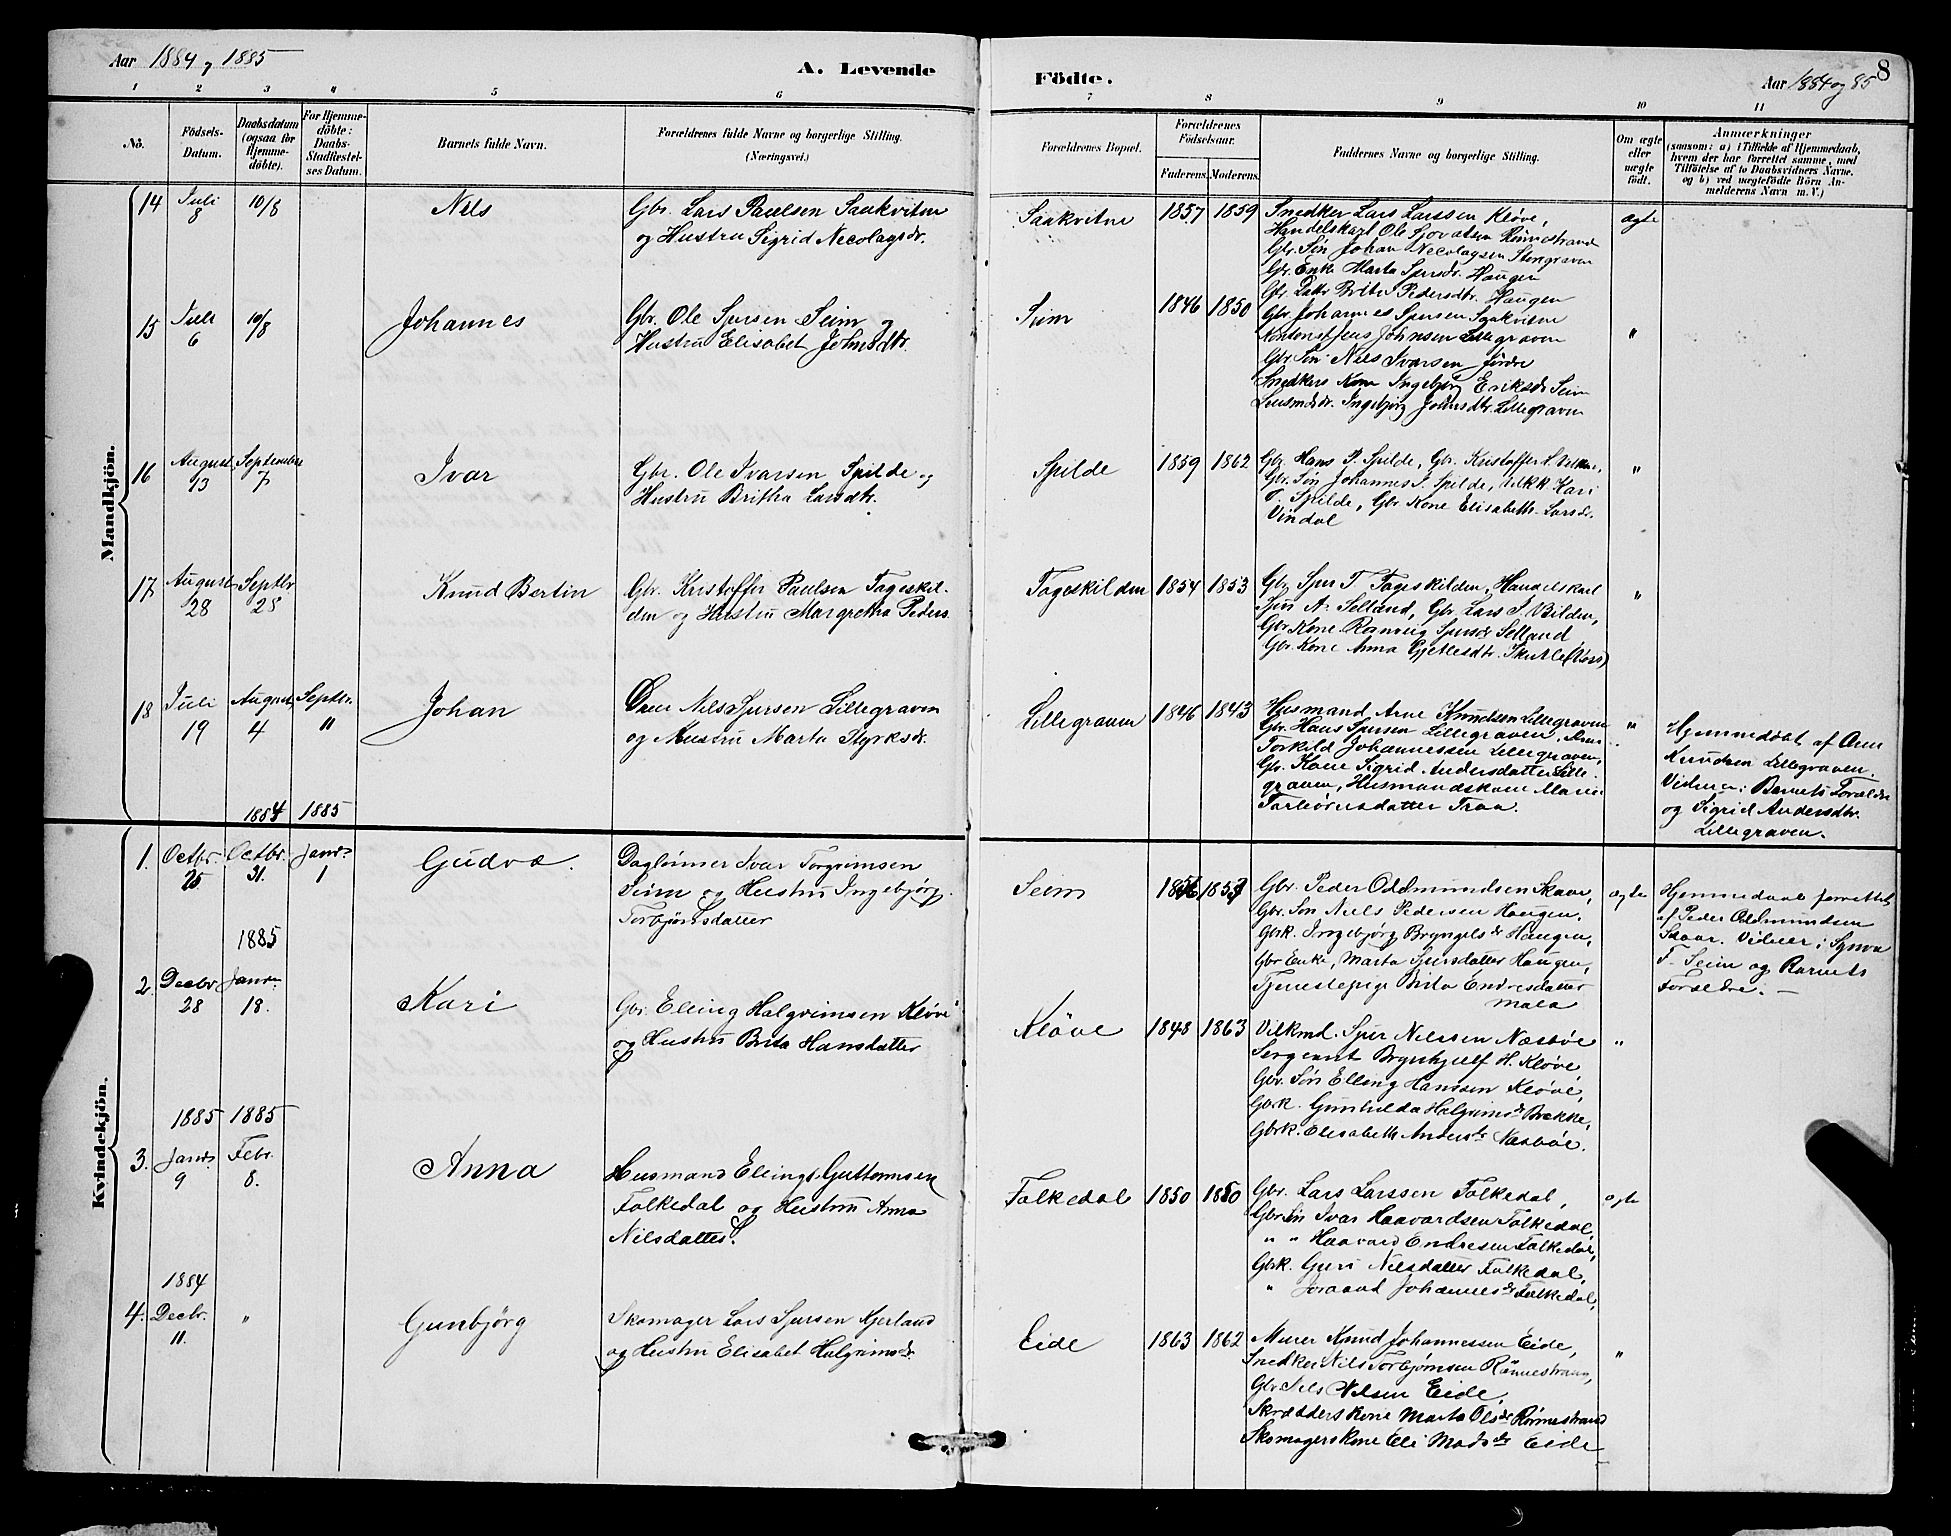 Aar 1884 og 1885
A. Levende
Födte.
Aar 1884 og 85
8
1 2 3 4 5 6 7 8 9 10 11
No.
Födsels-
Datum.
Daabsdatum
(ogsaa for
Hjemme-
döbte).
For Hjemme-
döbte:
Daabs-
Stadfæstel-
ses Datum.
Barnets fulde Navn.
Forældrenes fulde Navne og borgerlige Stilling.
(Næringsvei.)
Forældrenes Bopæl.
Forældrenes
Födselsaar.
Faderens. Moderens.
Faddernes Navne og borgerlige Stilling.
Om ægte
eller
uægte
födt.
Anmærkninger
(saasom: a) i Tilfælde af Hjemmedaab,
hvem der har forrettet samme, med
Tilföielse af to Daabsvidners Navne,
og b) ved uægtefödte Börn An-
melderens Navn m. V.)
Mandkjön.
14 Juli 8 10/8 Nils
Gbr. Lars Paulsen Saakvitne
og Hustru Sigrid Necolagsdr.
Saakvitne 1857 1859
Snedker Lars Larssen Kløve,
Handelskarl Ole Sjovatsen Rønnestrand
Gbr. Søn Johan Necolagsen Stengraven
Gbr. Enke Marta Sjursdr. Haugen
Gbr. Datter Brita Pedersdtr. Haugen
ægte
15 Juli 6 10/8 Johannes
Gbr. Ole Sjursen Seim og
Hustru Elisabet Johnsdtr.
Seim 1846 1850
Gbr. Johannes Sjursen Saakvitne
Jens Johnsen Lillegraven
Gbr. Søn Nils Ivarsen Jørdre
Snedkers Kone Ingebjørg Eriksdr Seim
Ingebjørg Johnsdtr. Lillegraven
"
16 August 13 September 7 Ivar
Gbr. Ole Ivarsen Spilde og
Hustru Britha Larsdtr.
Spilde 1859 1862
Gbr. Hans P. Spilde, Gbr. Kristoffer
Gbr. Søn Johannes I. Spilde, Kari
Spilde, Gbr Kone Elisabeth Larsdr.
Vindal
"
17 August 28 Septbr 28 Knud Bertin
Gbr. Kristoffer Paulsen Tageskil-
den og Hustru Margretha Peders
Tageskilden 1854 1853
Gbr Sjur T. Tageskilden, Handelskarl
Sjur A. Selland, Gbr. Lars S. Bilden,
Gbr Kone Ranveig Sjursdr Selland
Gbr. Kone Anna Gjetlesdtr. Skutle (Voss)
"
18 Juli 19 August 4 Septbr. 11 Johan
Nils Sjursen Lillegraven
og Hustru Marta Styrksdr.
Lillegraven 1846 1843
Husmand Arne Knudsen Lillegraven
Gbr. Hans Sjursen Lillegraven,
Torkild Johannessen Lillegraven,
Gbr. Kone Sigrid Andersdatter Lille-
graven, Husmandskone Mari
Torbörnsdatter Traa.
"
Hjemmedøbt af Arne
Knudsen Lillegraven.
Vidner: Barnets Forældre
og Sigrid Andersdtr.
Lillegraven.
1884 1885
Kvindekjön.
1. Octbr. 25 Octbr. 31. Janr. 1 Gudvæ.
Daglönner Ivar Torgrimsen
Seim og Hustru Ingebjørg
Torbjörnsdatter
Seim
Gbr. Peder Oddmundsen Skaar,
Gbr. Søn Niels Pedersen Haugen,
Gbrk. Ingebjørg Bryngelsdr Haugen,
Gbr Enke, Marta Sjursdatter Haugen,
Tjenestepige Brita Endresdatter
Mala
ægte
Hjemmedaab forrettet
af Peder Oddmundsen
Skaar. Vidner: Synva
T. Seim og Barnets
Forældre. —
1885
2. Decbr 28 Janr. 18. Kari
Gbr. Elling Halgrimsen Kløve
og Hustru Brita Hansdatter
Kløve 1848 1863
Vilkmd. Sjur Nilssen Næsbøe
Sergeant Brynhjulf H. Kløve
Gbr. Søn Elling Hanssen Kløve,
Gbrk. Gunhilda Halgrimsdr Brække,
Gbrk. Elisabeth Andersdr Næsbøe.
"
1885 1885
3. Janr. 9 Febr. 8. Anna
Husmand Elling Guttormsen
Folkedal og Hustru Anna
Nilsdatter.
Folkedal 1850 1850
Gbr. Lars Larssen Folkedal,
Gbr Søn Ivar Haavardsen Folkedal,
" " Haavard Endresen Folkedal,
Gbrk. Guri Nilsdatter Folkedal,
" Joraand Johannesdr Folkedal,
ægte
1884
4. Decbr. 11. " Gunbjörg
Skomager Lars Sjursen Kjerland
og Hustru Elisabet Halgrimsdr.
Eide 1863 1862
Murer Knud Johannessen Eide,
Snedker Nils Torbjörnsen Rönnestrand,
Gbr. Nils Nilsen Eide,
Skrædderskone Marta Olsdr Rönnestrand
Skomagerskone Eli Madsdr Eide
"